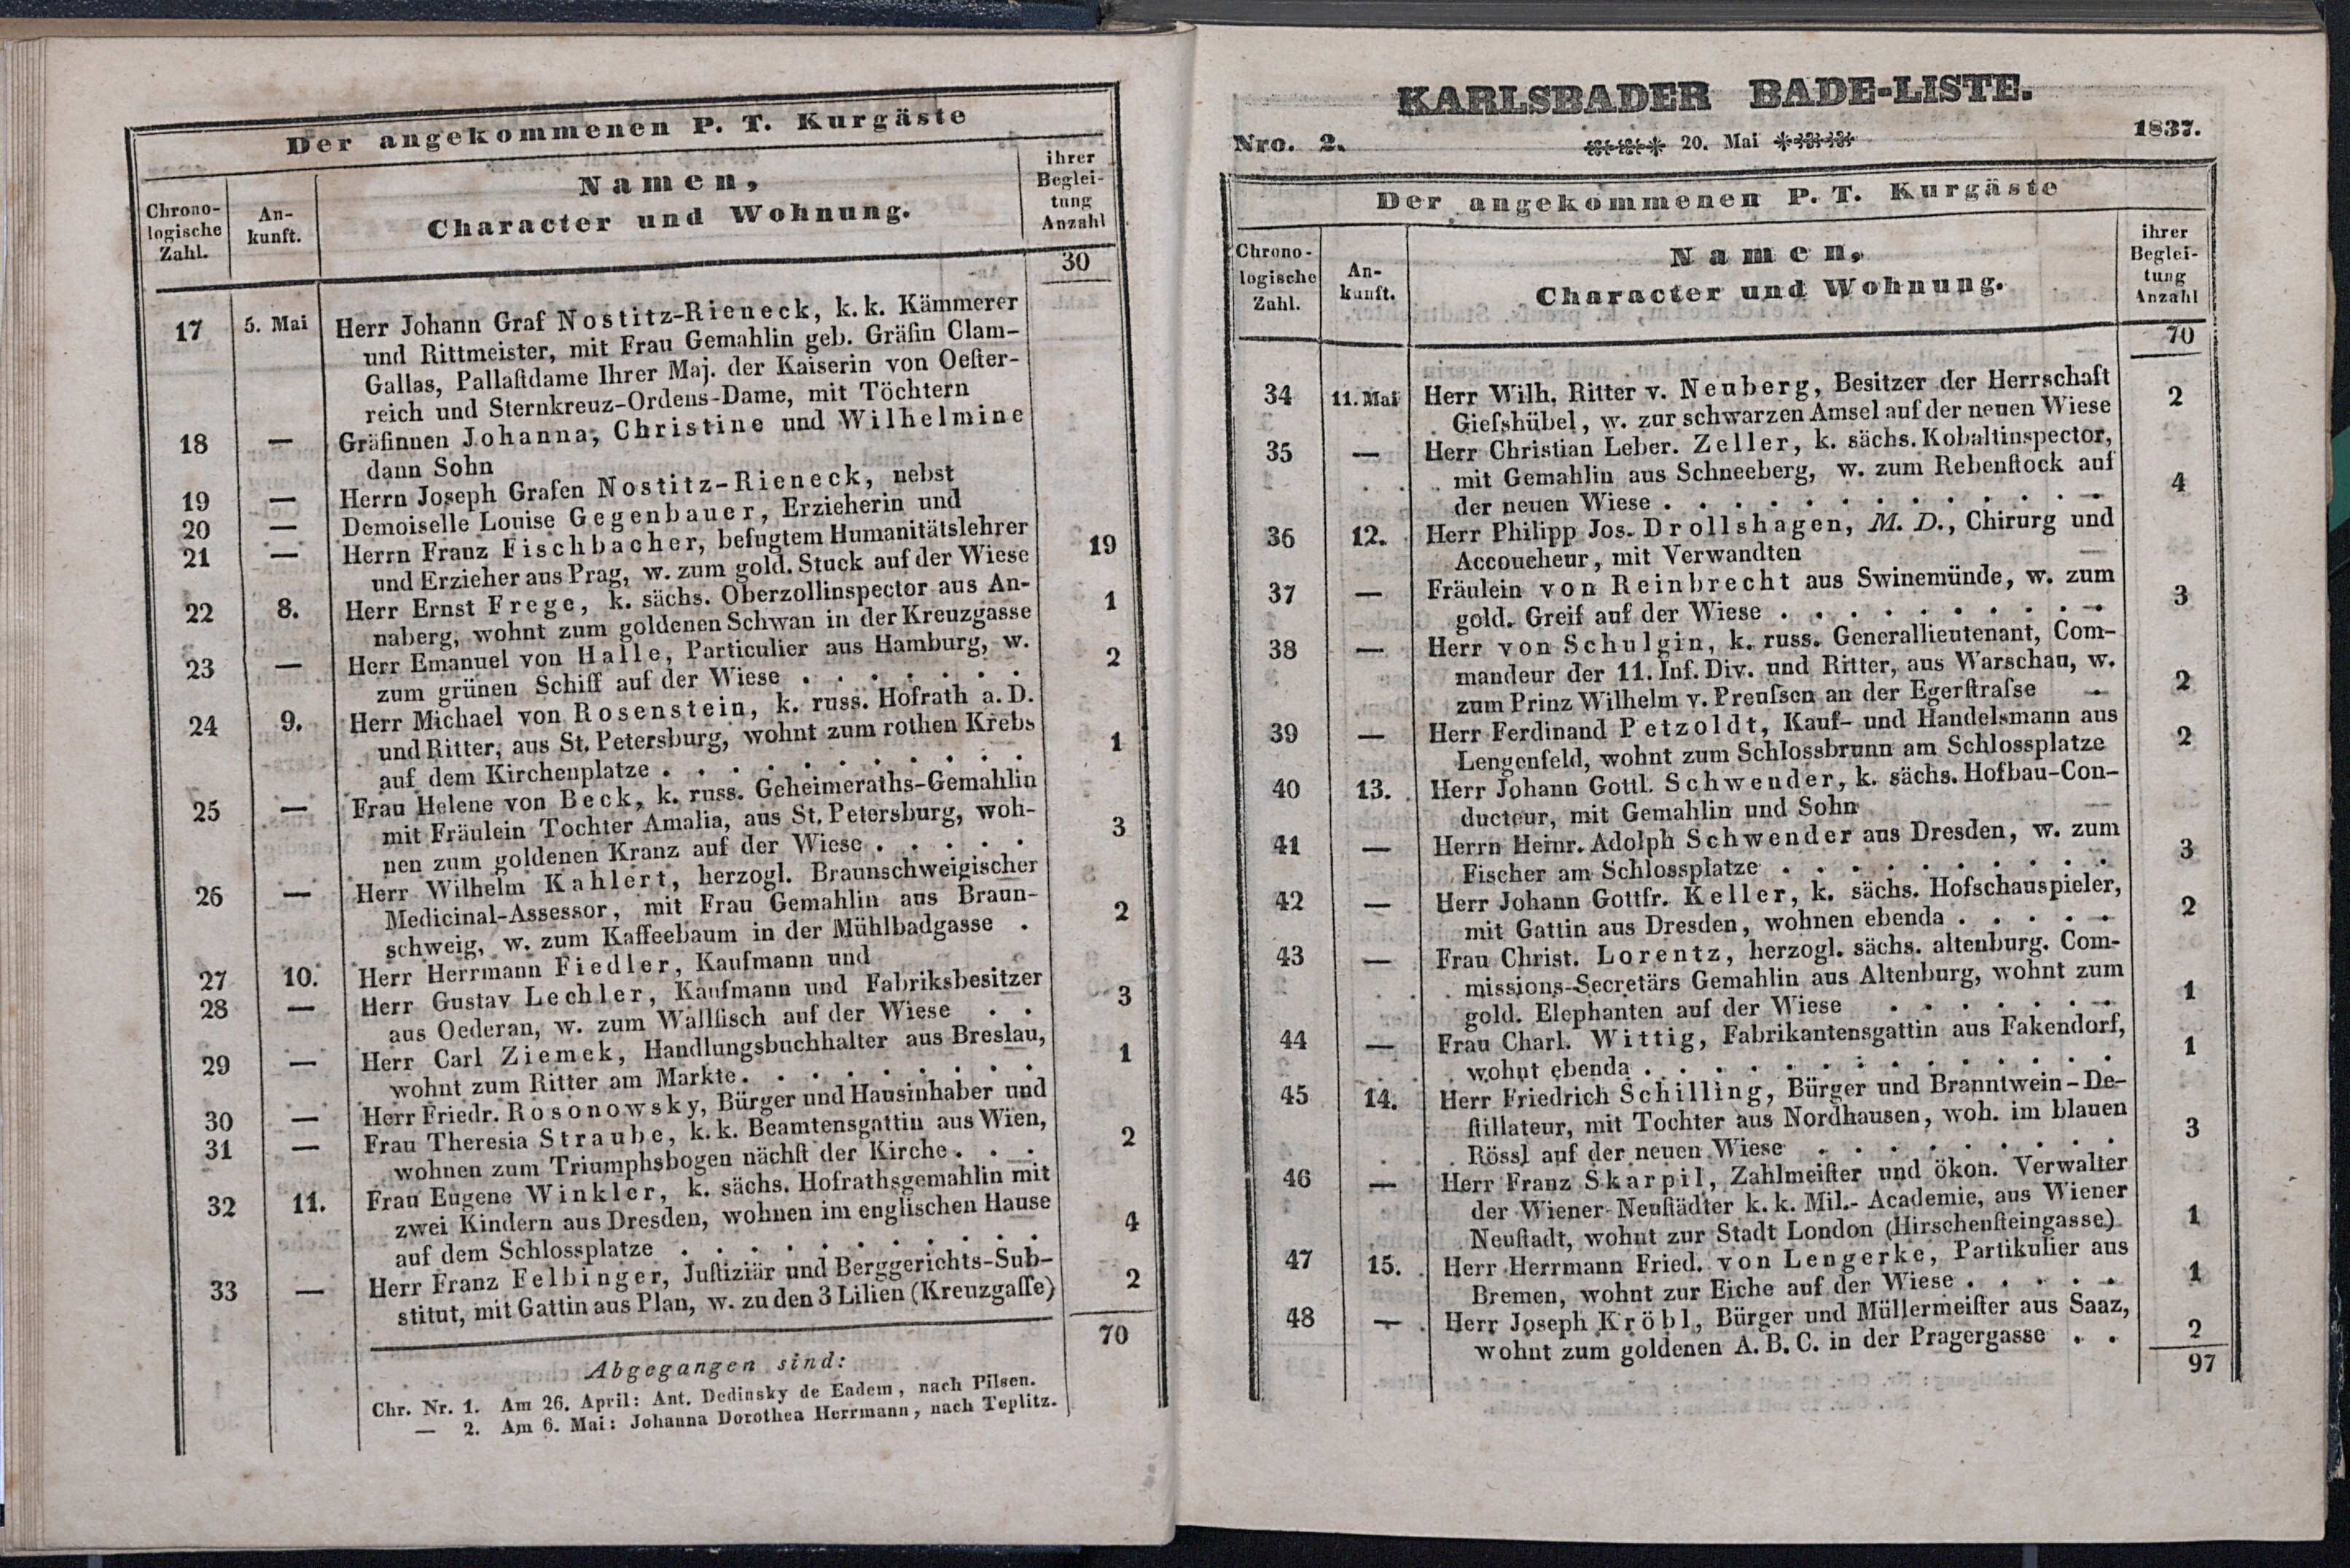 Der angekommenen P. T. Kurgäste
Chrono-
logische
Zahl.
An-
kunft.
Namen,
Character und Wohnung.
ihrer
Beglei-
tung
Anzahl
30
17 5. Mai Herr Johann Graf Nostitz-Rieneck, k. k. Kämmerer
und Rittmeister, mit Frau Gemahlin geb. Gräfin Clam-
Gallas, Pallaſtdame Ihrer Maj. der Kaiserin von Oeſter-
reich und Sternkreuz-Ordens-Dame, mit Töchtern
18 — Gräfinnen Johanna, Christine und Wilhelmine
dann Sohn
19 — Herrn Joseph Grafen Nostitz-Rieneck, nebst
20 — Demoiselle Louise Gegenbauer, Erzieherin und
21 — Herrn Franz Fischbacher, befugtem Humanitätslehrer
und Erzieher aus Prag, w. zum gold. Stuck auf der Wiese 19
22 8. Herr Ernst Frege, k. sächs. Oberzollinspector aus An-
naberg, wohnt zum goldenen Schwan in der Kreuzgasse 1
23 — Herr Emanuel von Halle, Particulier aus Hamburg, w.
zum grünen Schiff auf der Wiese . . . . . . . 2
24 9. Herr Michael von Rosenstein, k. russ. Hofrath a. D.
und Ritter, aus St. Petersburg, wohnt zum rothen Krebs
auf dem Kirchenplatze . . . . . . . . . . . 1
25 — Frau Helene von Beck, k. russ. Geheimeraths-Gemahlin
mit Fräulein Tochter Amalia, aus St. Petersburg, woh-
nen zum goldenen Kranz auf der Wiese . . . . . 3
26 — Herr Wilhelm Kahlert, herzogl. Braunschweigischer
Medicinal-Assessor, mit Frau Gemahlin aus Braun-
schweig, w. zum Kaffeebaum in der Mühlbadgasse . 2
27 10. Herr Herrmann Fiedler, Kaufmann und
28 — Herr Gustav Lechler, Kaufmann und Fabriksbesitzer
aus Oederan, w. zum Wallfisch auf der Wiese . . 3
29 — Herr Carl Ziemek, Handlungsbuchhalter aus Breslau,
wohnt zum Ritter am Markte. . . . . . . . . 1
30 — Herr Friedr. Rosonowsky, Bürger und Hausinhaber und
31 — Frau Theresia Straube, k. k. Beamtensgattin aus Wien,
wohnen zum Triumphsbogen nächſt der Kirche . . . 2
32 11. Frau Eugene Winkler, k. sächs. Hofrathsgemahlin mit
zwei Kindern aus Dresden, wohnen im englischen Hause
auf dem Schlossplatze . . . . . . . . . . . 4
33 — Herr Franz Felbinger, Juſtiziär und Berggerichts-Sub-
stitut, mit Gattin aus Plan, w. zu den 3 Lilien (Kreuzgaſſe) 2
70
Abgegangen sind:
Chr. Nr. 1. Am 26. April: Ant. Dedinsky de Eadem, nach Pilsen.
— 2. Am 6. Mai: Johanna Dorothea Herrmann, nach Teplitz.
KARLSBADER BADE-LISTE.
Nro. 2. 20. Mai 1837.
Der angekommenen P. T. Kurgäste
Chrono-
logische
Zahl.
An-
kunft.
Namen,
Character und Wohnung.
ihrer
Beglei-
tung
Anzahl
70
34 11. Mai Herr Wilh. Ritter v. Neuberg, Besitzer der Herrschaft
Gieſshübel, w. zur schwarzen Amsel auf der neuen Wiese 2
35 — Herr Christian Leber. Zeller, k. sächs. Kobaltinspector,
mit Gemahlin aus Schneeberg, w. zum Rebenſtock auf
der neuen Wiese . . . . . . . . . . . . . 4
36 12. Herr Philipp Jos. Drollshagen, M. D., Chirurg und
Accoucheur, mit Verwandten
37 — Fräulein von Reinbrecht aus Swinemünde, w. zum
gold. Greif auf der Wiese . . . . . . . . . . 3
38 — Herr von Schulgin, k. russ. Generallieutenant, Com-
mandeur der 11. Inf. Div. und Ritter, aus Warschau, w.
zum Prinz Wilhelm v. Preuſsen an der Egerſtraſse . 2
39 — Herr Ferdinand Petzoldt, Kauf- und Handelsmann aus
Lengenfeld, wohnt zum Schlossbrunn am Schlossplatze 2
40 13. Herr Johann Gottl. Schwender, k. sächs. Hofbau-Con-
ducteur, mit Gemahlin und Sohn
41 — Herrn Heinr. Adolph Schwender aus Dresden, w. zum
Fischer am Schlossplatze . . . . . . . . . . 3
42 — Herr Johann Gottfr. Keller, k. sächs. Hofschauspieler,
mit Gattin aus Dresden, wohnen ebenda . . . . . 2
43 — Frau Christ. Lorentz, herzogl. sächs. altenburg. Com-
missions-Secretärs Gemahlin aus Altenburg, wohnt zum
gold. Elephanten auf der Wiese . . . . . . . 1
44 — Frau Charl. Wittig, Fabrikantensgattin aus Fakendorf,
wohnt ebenda . . . . . . . . . . . . . . 1
45 14. Herr Friedrich Schilling, Bürger und Branntwein-De-
ſtillateur, mit Tochter aus Nordhausen, woh. im blauen
Rössl auf der neuen Wiese . . . . . . . . . 3
46 — Herr Franz Skarpil, Zahlmeiſter und ökon. Verwalter
der Wiener-Neuſtädter k. k. Mil.-Academie, aus Wiener
Neuſtadt, wohnt zur Stadt London (Hirschenſteingasse) 1
47 15. Herr Herrmann Fried. von Lengerke, Partikulier aus
Bremen, wohnt zur Eiche auf der Wiese . . . . . 1
48 — Herr Joseph Kröbl, Bürger und Müllermeiſter aus Saaz,
wohnt zum goldenen A. B. C. in der Pragergasse . . 2
97